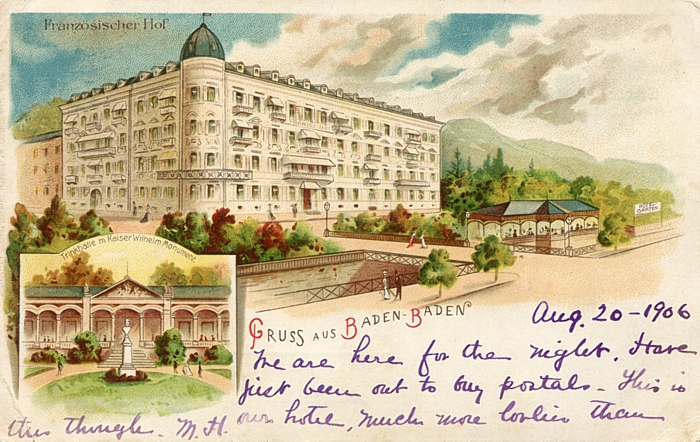 Französischer Hof
HOTEL
GARTEN
Trinkhalle m Kaiser Wilhelm Monument
GRUSS AUS BADEN-BADEN
Aug. 20-1906
We are here for the night. Have
just been out to buy postals - This is
our hotel, much more lovlier than
this though. M. H.